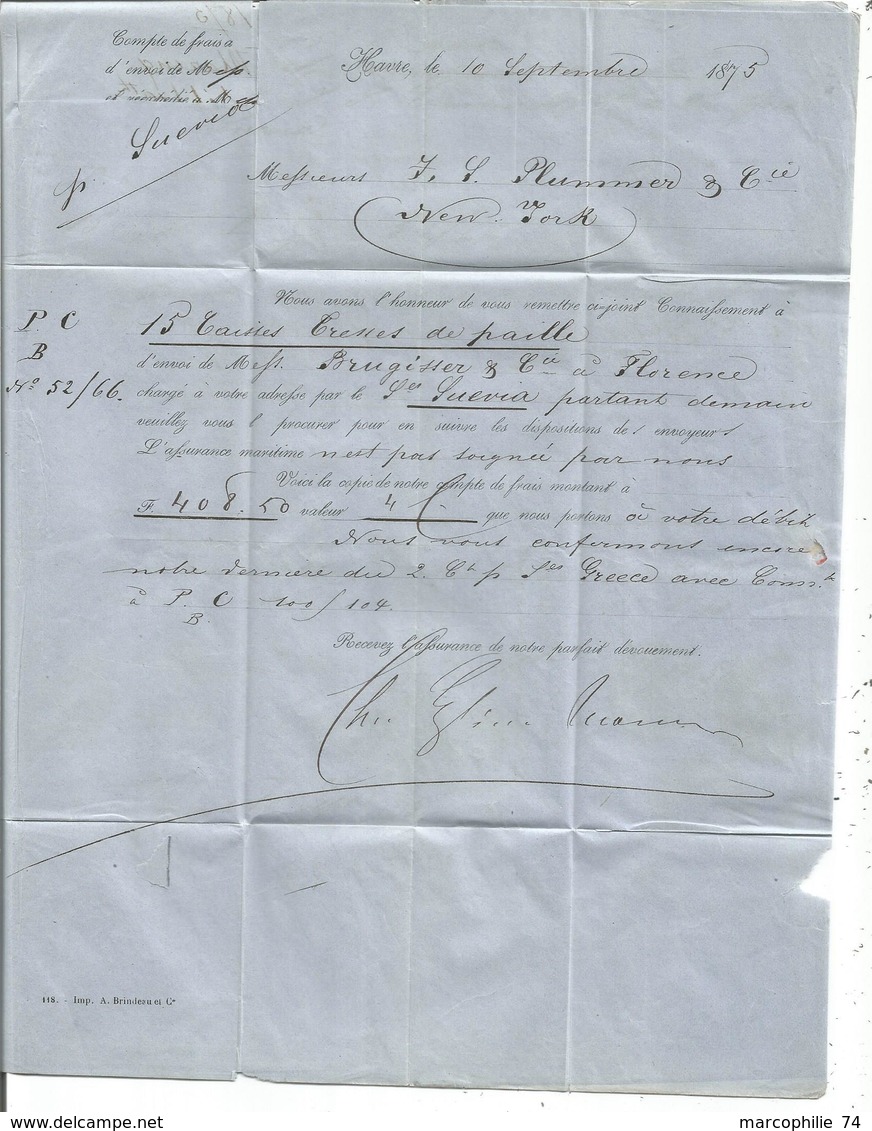 Compte de frais à
d'envoi de Mess.
p Suevia
Havre, le 10 Septembre 1875
Messieurs J. S. Plummer & Cie
New-York
Nous avons l'honneur de vous remettre ci-joint Connaissement à
P. C
B
Nº 52/66.
15 Caisses Tresses de paille
d'envoi de Mess. Brugisser & Cie à Florence
chargé à votre adresse par le Ses Suevia partant demain
veuillez vous l procurer pour en suivre les dispositions des envoyeurs
L'assurance maritime n'est pas soignée par nous
Voici la copie de notre compte de frais montant à
F. 408.50 valeur 4 que nous portons à votre débit
Nous vous confirmons encore
notre dernière du 2. Ct p Ses Greece avec Conn.t
à P. C 100/104.
B.
Recevez l'assurance de notre parfait dévouement.
118. - Imp. A. Brindeau et Cie
marcophilie 74